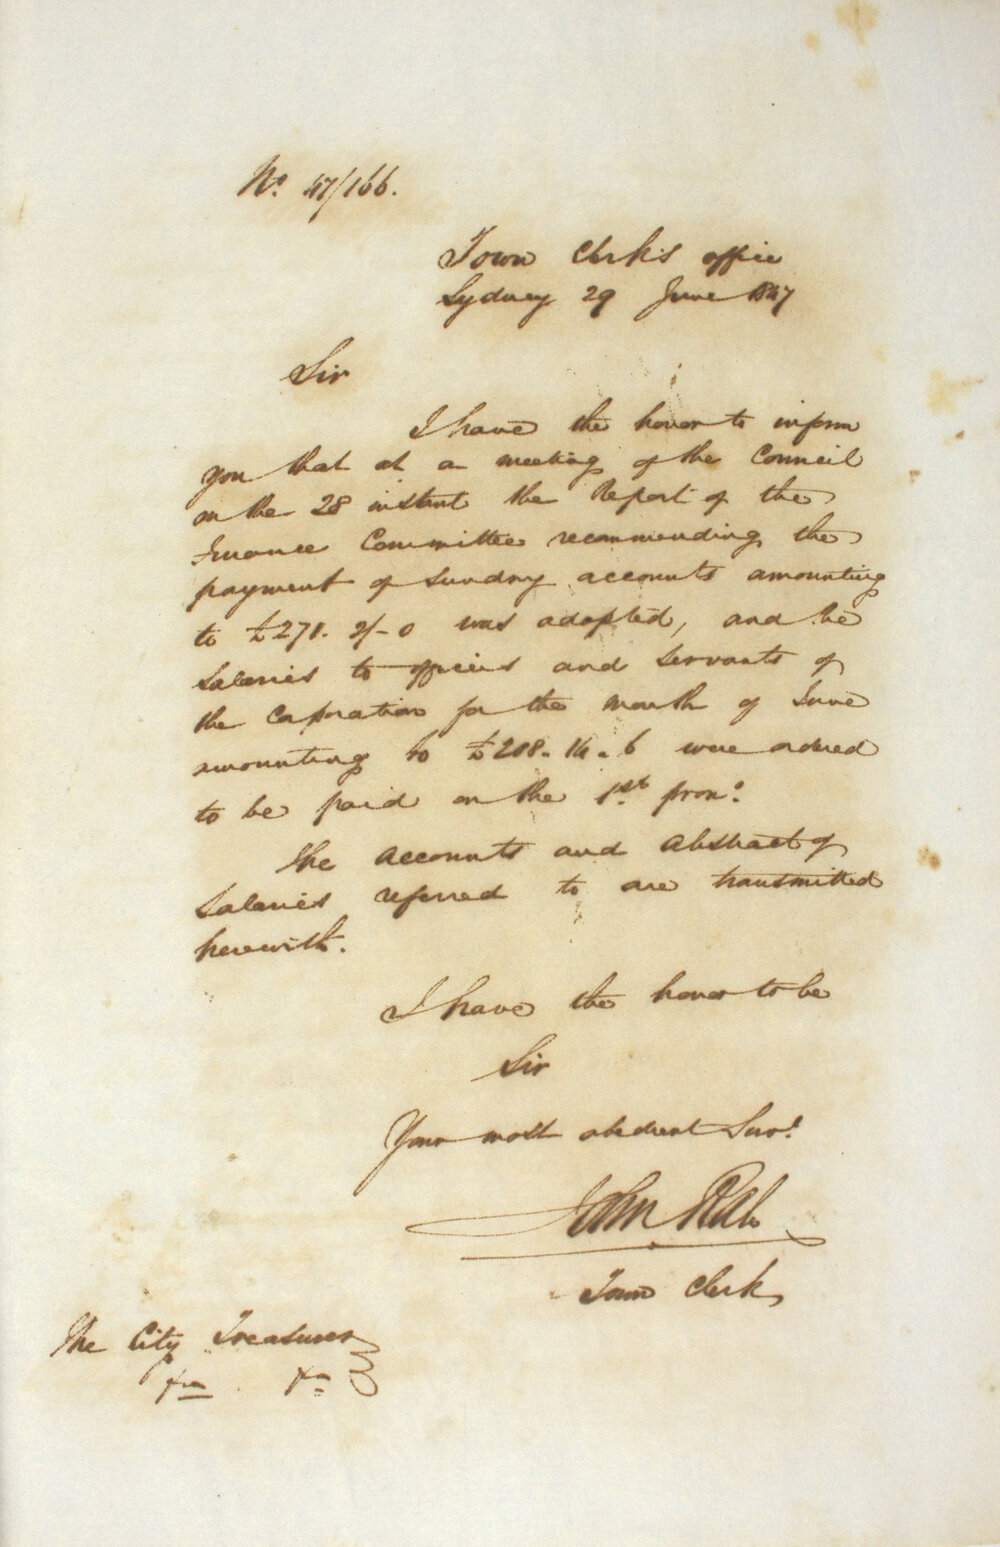 No. 47/166.
Town Clerk's office
Sydney 29 June 1847
Sir
I have the honor to inform
you that at a meeting of the Council
on the 28 instant the Report of the
Finance Committee recommending the
payment of sundry accounts amounting
to £271. 2/-0 was adopted, and the
salaries to officers and servants of
the Corporation for the month of June
amounting to £208. 14. 6 were ordered
to be paid on the 1st proxo.
The accounts and abstract of
salaries referred to are transmitted
herewith.
I have the honor to be
Sir
Your most obedient Servt.
John Rae
Town Clerk
The City Treasurer